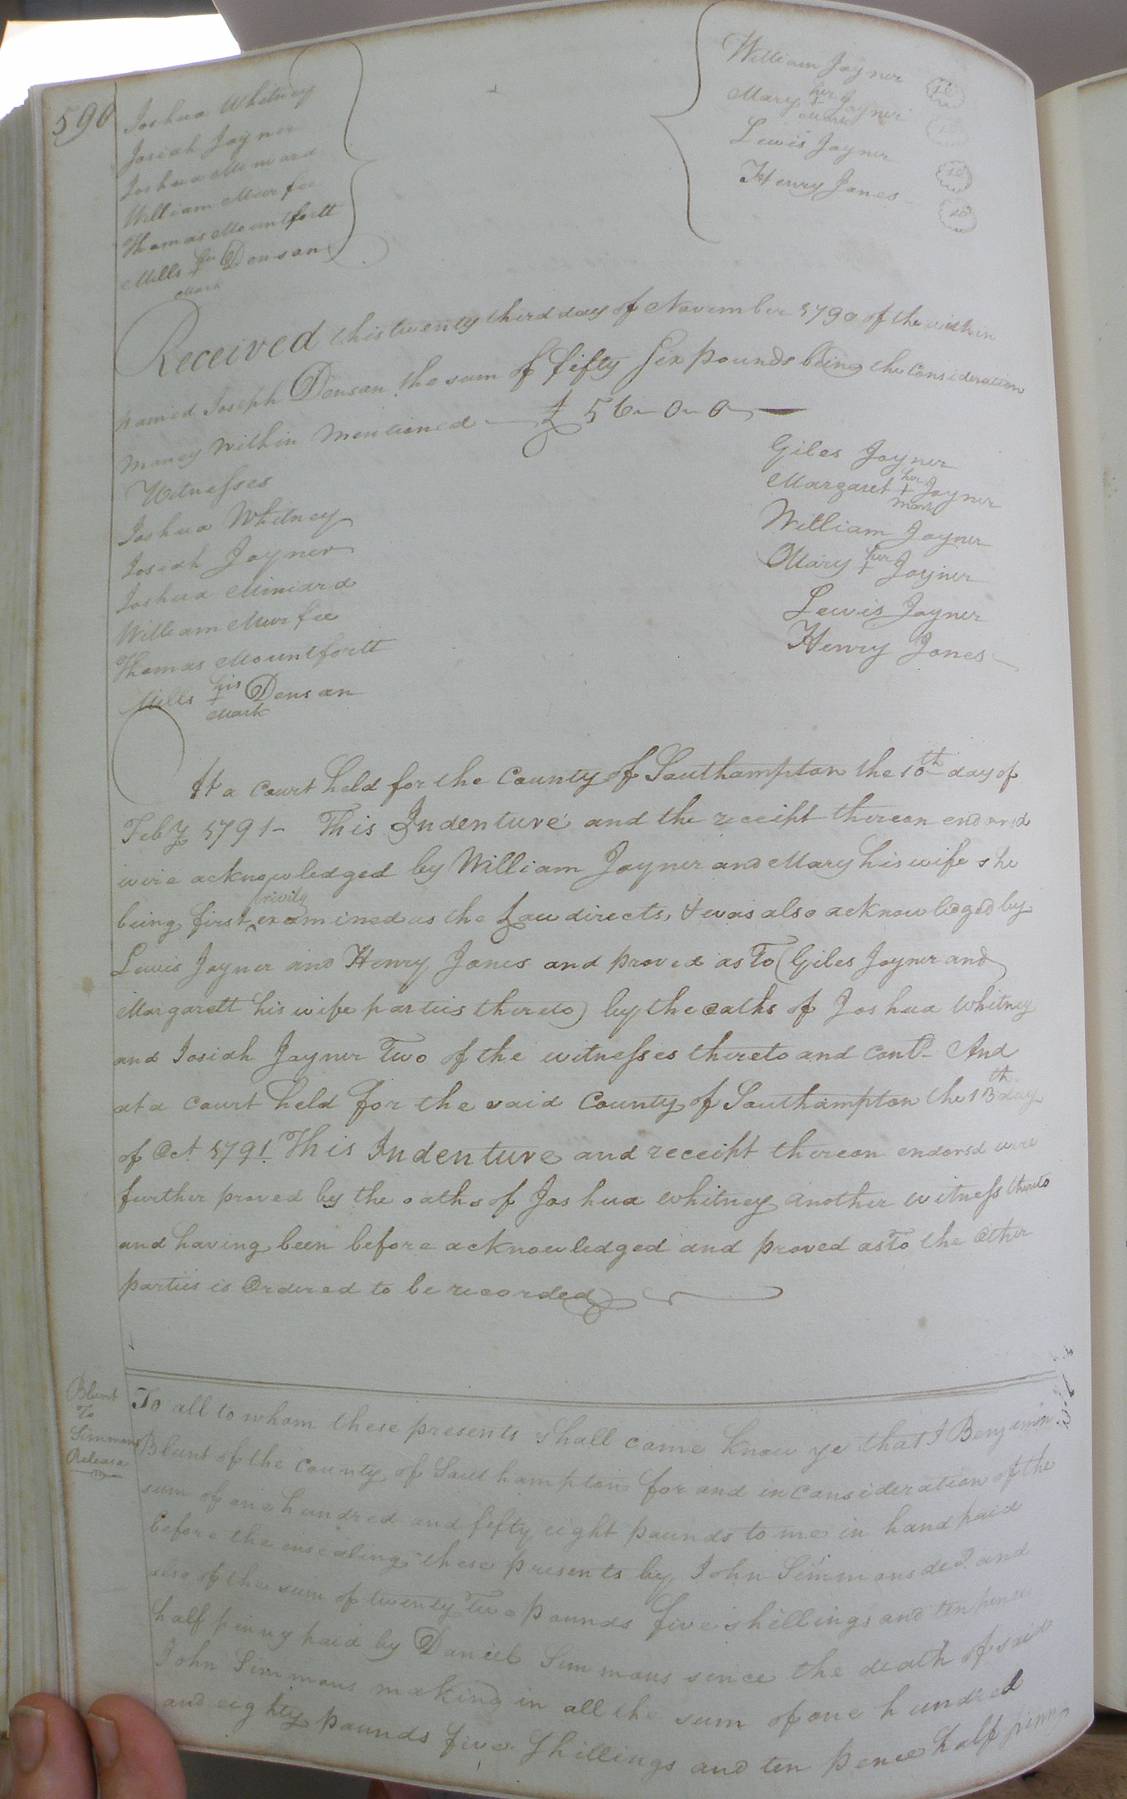 590
Joshua Whitney
Josiah Joyner
Joshua Miniard
William Murfee
Thomas Mountfortt
Mills his + mark Densan
William Joyner
Mary her + mark Joyner
Lewis Joyner
Henry Jones
Received this twenty third day of November 1790 of the within
named Joseph Densan the sum of fifty Six pounds being the Consideration
money within mentioned £ 56-0-0
Witnesses
Joshua Whitney
Josiah Joyner
Joshua Miniard
William Murfee
Thomas Mountfortt
Mills his + mark Densan
Giles Joyner
Margaret her + mark Joyner
William Joyner
Mary her + Joyner
Lewis Joyner
Henry Jones
At a Court held for the County of Southampton the 10th day of
Feby 1791- This Indenture and the receipt thereon endorsd
were acknowledged by William Joyner and Mary his wife she
being first privily examined as the Law directs, & was also acknowledged by
Lewis Joyner and Henry Jones and proved as To (Giles Joyner and
Margarett his wife parties thereto) by the oaths of Joshua Whitney
and Josiah Joyner Two of the witnesses thereto and contd- And
at a Court held for the said County of Southampton the 13th day
of Oct 1791. This Indenture and receipt thereon endorsd were
further proved by the oaths of Joshua Whitney another witness thereto
and having been before acknowledged and proved as To the Other
parties is Ordered to be recorded
Blunt
To
Simmons
Release
To all to whom these presents Shall come know ye that I Benjamin
Blunt of the County of Southampton for and in Consideration of the
sum of one hundred and fifty eight pounds to me in hand paid
before the ensealing these presents by John Simmons decd. and
also of the sum of twenty Two pounds five shillings and ten pence
half penny paid by Daniel Simmons since the death of said
John Simmons making in all the sum of one hundred
and eighty pounds five Shillings and ten pence half penny